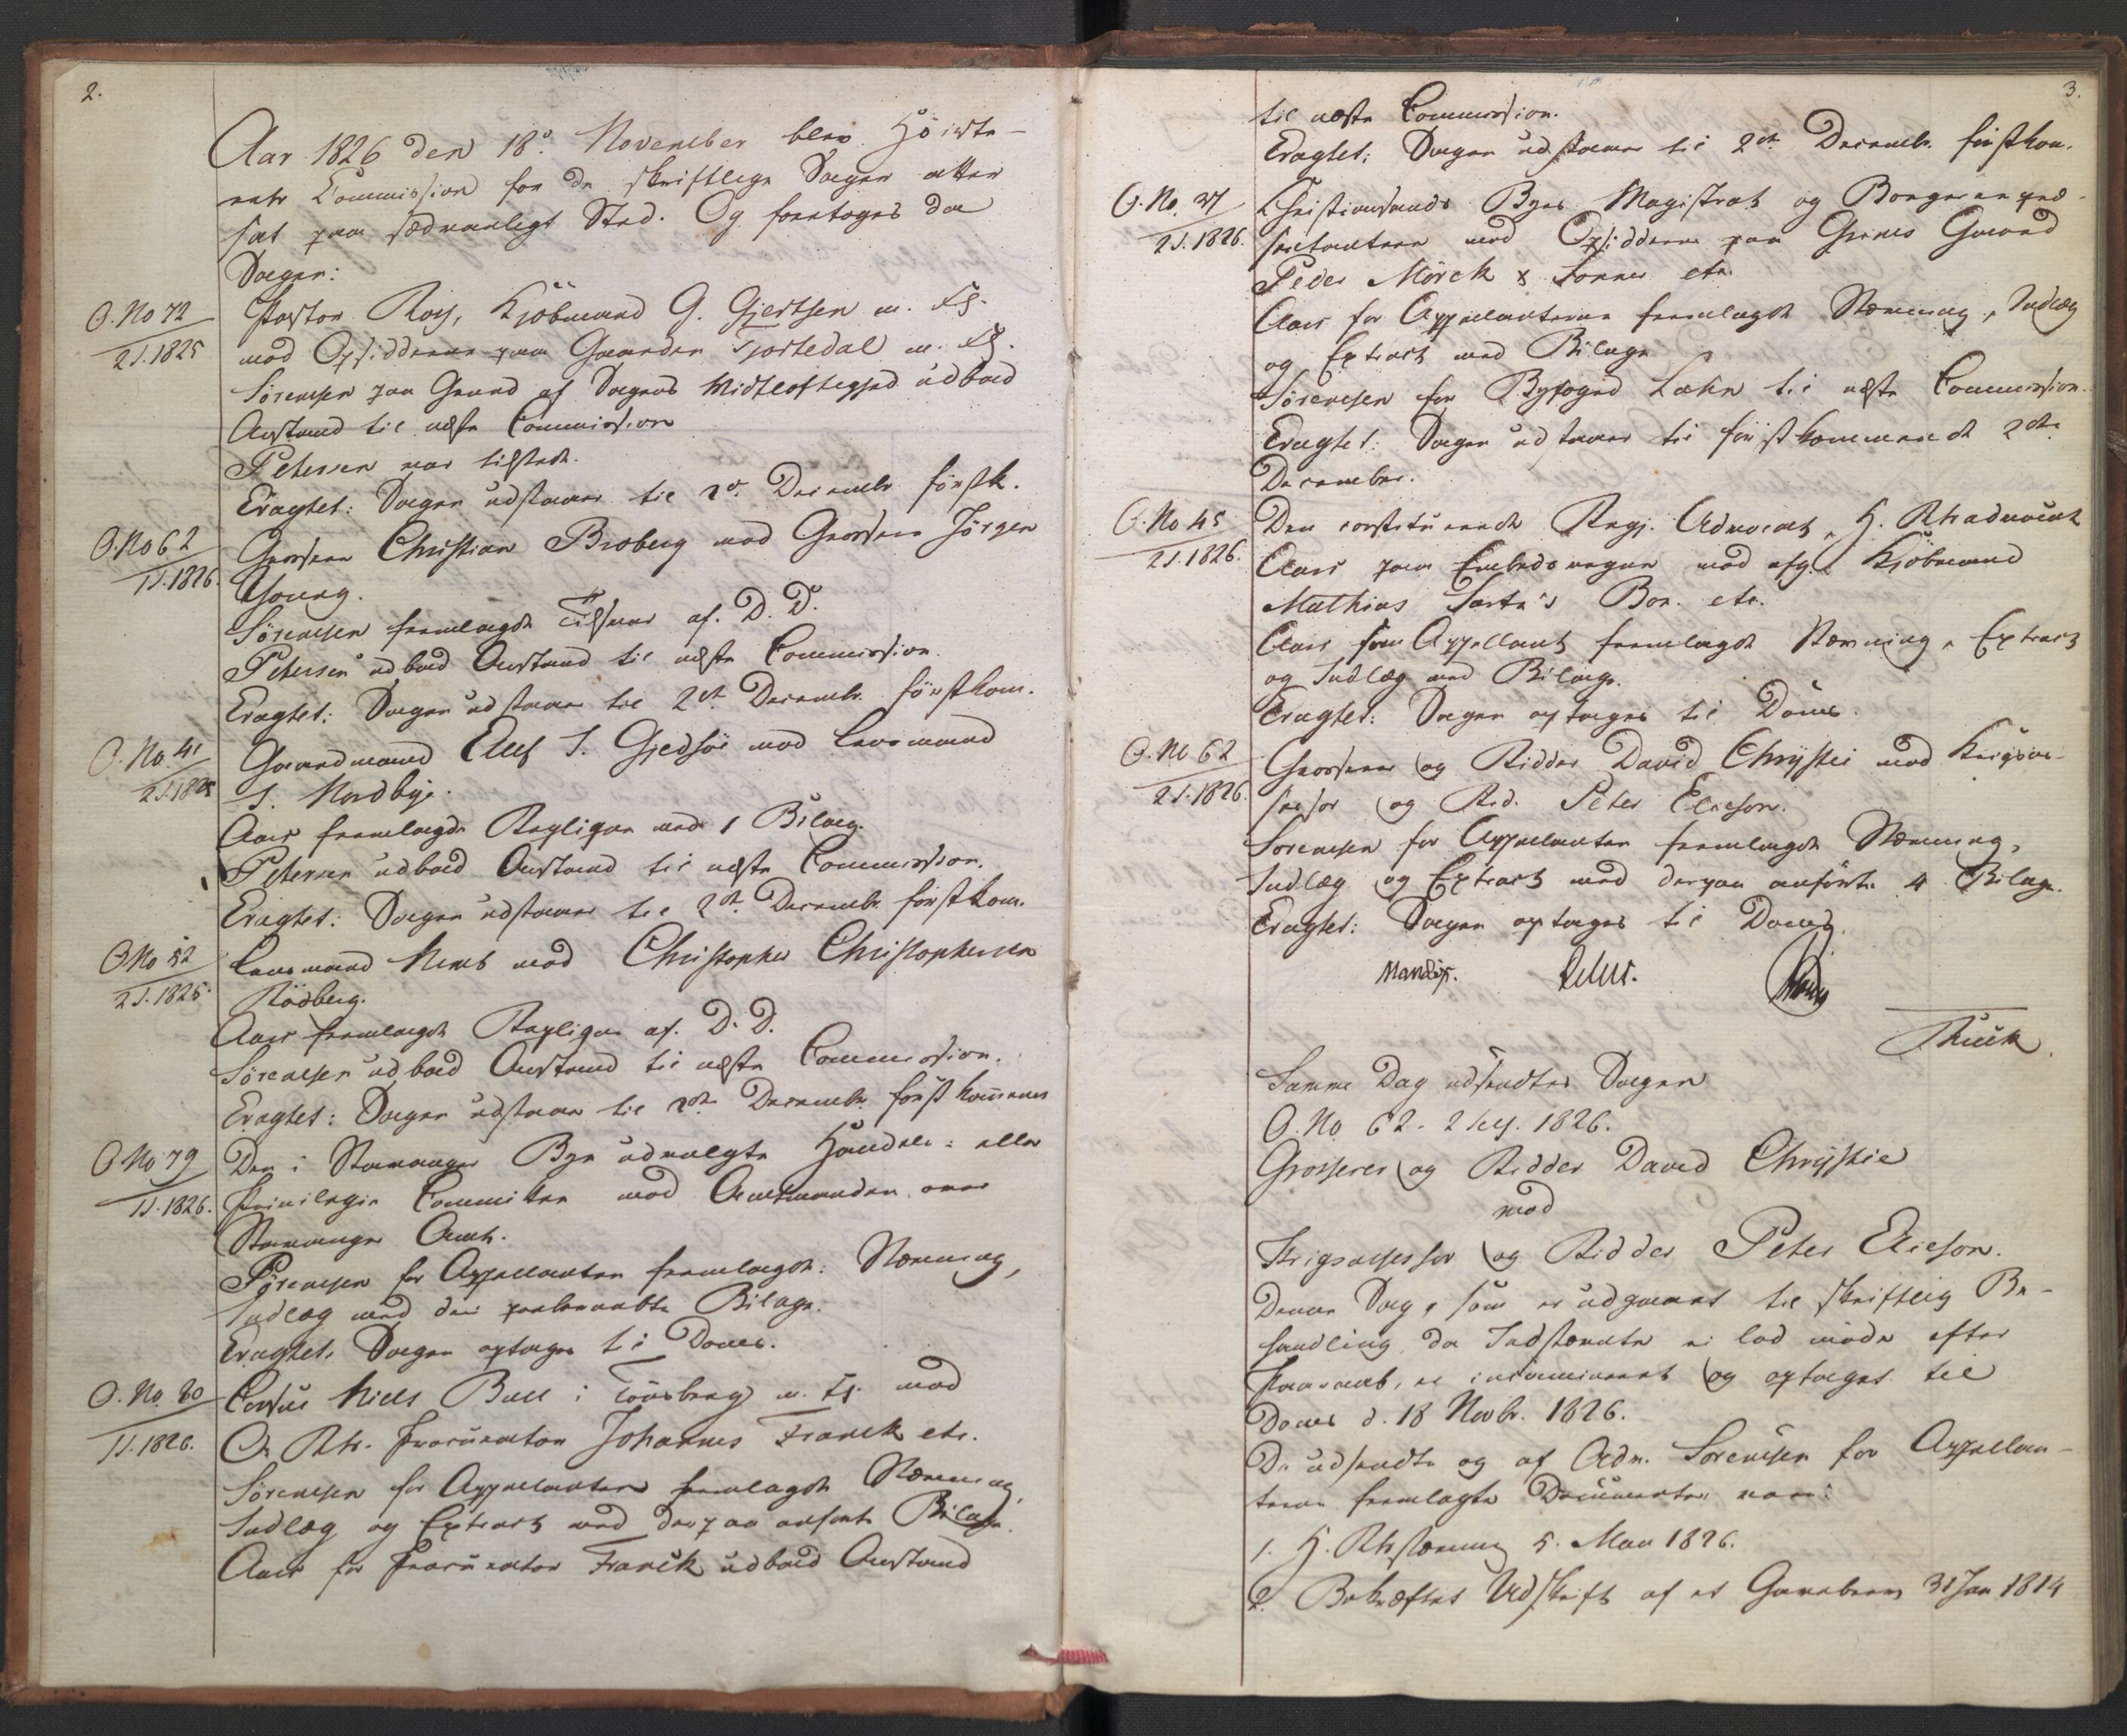 2.
Aar 1826 den 18de November blev Höieste-
rets Commission for de skriftlige Sager atter
sat paa sædvanligt Sted. Og foretoges da
Sagen:
O. No 72
2 S. 1825
Pastor Roy, Kjöbmand G. Gjertsen m. Fl.
mod Opsidderne paa Gaarden Tjostedal m. Fl.
Sörensen paa Grund af Sagens Vidtløftighed udbad
Anstand til næste Commission
Petersen var tilstede.
Eragtet: Sagen udstaaer til 2de Decembr förstk.
O. No 62
1 S. 1826.
Grosserer Christian Broberg mod Grosserer Jörgen
Young.
Sörensen fremlagde Tilsvar af D. D.
Petersen udbad Anstand til næste Commission.
Eragtet: Sagen udstaaer til 2de Decembr. förstkom.
O. No. 41
2 S. 1825
Gaardmand Elef S. Gjedsöe mod Lensmand
S. Nordbye.
Aars fremlagde Repliqve med 1 Bilag.
Petersen udbad Anstand til næste Commission.
Eragtet: Sagen udstaaer til 2de Decembr. förstkom.
O No 52
2 S. 1825.
Lensmand Nims mod Christopher Christophersen
Rödberg.
Aars fremlagde Repliqve af D. D.
Sörensen udbad Anstand til næste Commission.
Eragtet: Sagen udstaaer til 2de Decembr. först kommener
O No 79
1 S. 1826.
Den i Stavanger Bye udvalgte Handels- eller
Privilegie Committee mod Amtmanden over
Stavanger Amt.
Sörensen for Appellanten fremlagde: Stævning,
Indlæg med den paaberaabte Bilage.
Eragtet, Sagen optages til Doms.
O. No. 80
1 S. 1826.
Consul Niels Bull i Tönsberg m. Fl. mod
O. Rts. Procurator Johannes Franck etc.
Sörensen for Appellanterne fremlagde Stævning,
Indlæg og Extract med derpaa anförte Bilage.
Aars for Procurator Franck udbad Anstand
3.
til næste Commission.
Eragtet: Sagen udstaaer til 2de Decembr. förstkom.
O. No. 37
2 S. 1826.
Christiansands Byes Magistrat og Borgerrepræ-
sentantere mod Opsidderne paa Grims Gaard
Peder Mörck & Sönner etc.
Aars for Appellanterne fremlagde Stævning, Indlæg
og Extract med Bilage
Sörensen for Byfoged Lahn til næste Commission.
Eragtet: Sagen udstaaer til förstkommende 2de
December.
O. No 45
2 S. 1826.
Den constituerede Regj. Advocat, H. Rtsadvocat
Aars paa Embedsvegne mod afg. Kjöbmand
Mathias Boe etc.
Aars som Appellant fremlagde Stævning, Extract
og Indlæg med Bilage.
Eragtet: Sagen optages til Doms.
O. No 62
2 S. 1826.
Grosserer og Ridder David Chrystie mod Krigsas-
sessor og Rid. Peter Elieson.
Sorensen for Appellanten fremlagde Stævning,
Indlæg og Extract med derpaa anförte 4 Bilage.
Eragtet: Sagen optages til Doms.
Mandix.
Thuck
Samme Dag udsendtes Sagen
O. No. 62. 2 Ses. 1826.
Grosserer og Ridder David Chrystie
mod
Krigsassessor og Ridder Peter Elieson.
Denne Sag, som er udgaaet til skriftlig Be-
handling, da Indstævnte ei lod möde efter
Paaraab, er incamineret og optaget til
Doms d. 18 Novbr. 1826.
De udsendte og af Adv. Sorensen for Appellan-
ten fremlagte Documenter var:
1. H. Rtsstævning 5. Mai 1826.
2. Bekræftet Udskrift af et Gavebrev 31 Jan 1814